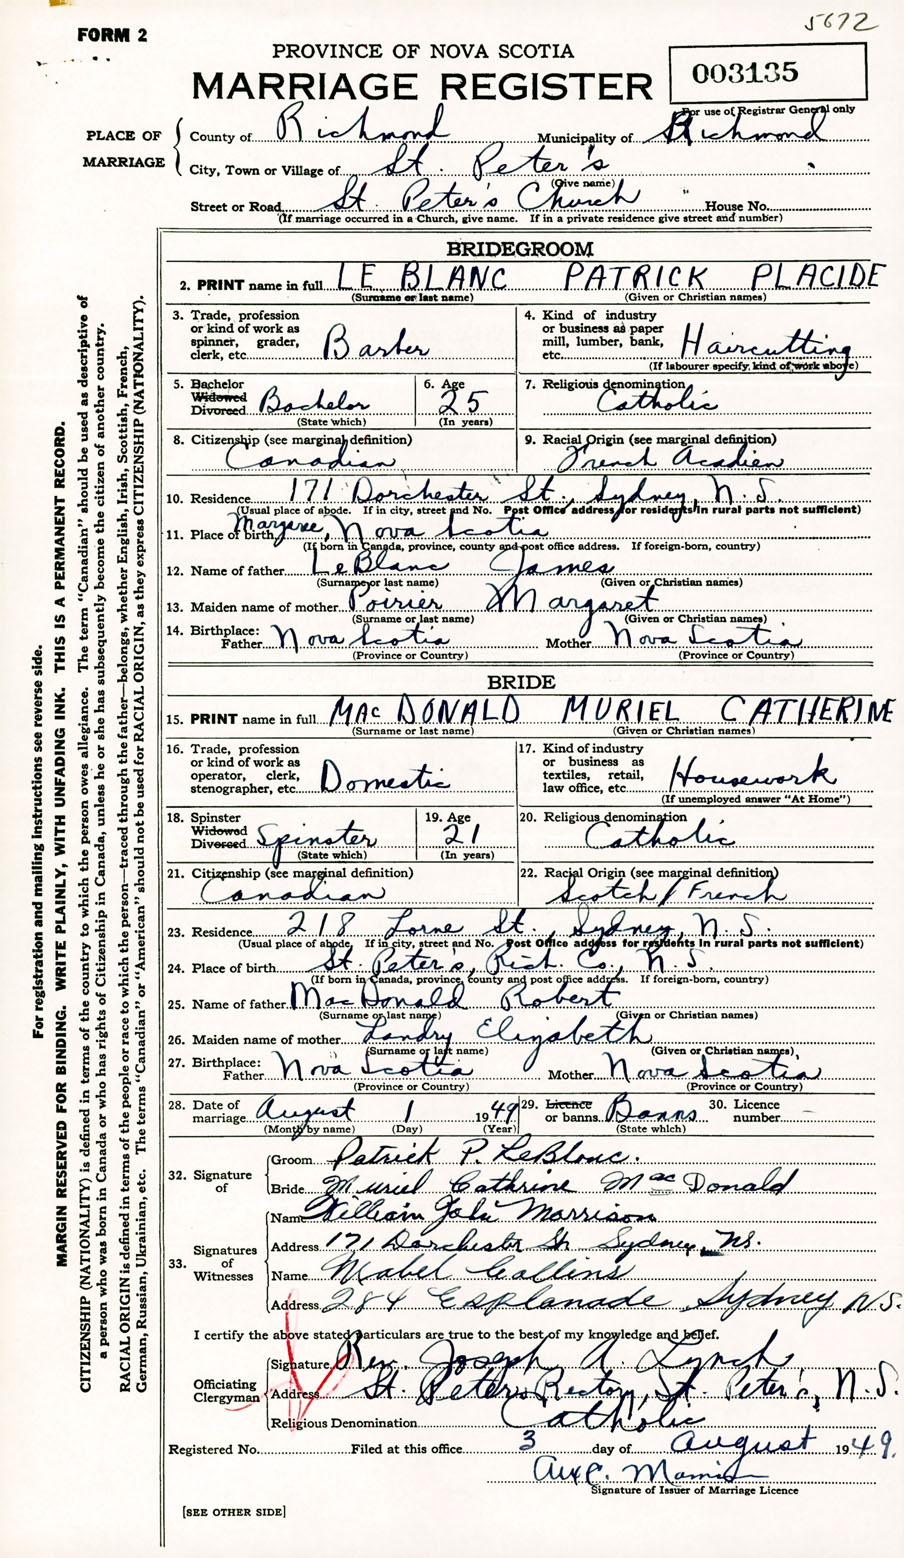 5672
FORM 2
PROVINCE OF NOVA SCOTIA
MARRIAGE REGISTER
003135
For use of Registrar General only
PLACE OF MARRIAGE
County of Richmond Municipality of Richmond
City, Town or Village of St. Peter's
(Give name)
Street or Road St Peter's Church House No.
(If marriage occurred in a Church, give name. If in a private residence give street and number)
BRIDEGROOM
2. PRINT name in full LE BLANC PATRICK PLACIDE
(Surname or last name) (Given or Christian names)
3. Trade, profession or kind of work as spinner, grader, clerk, etc. Barber
4. Kind of industry or business as paper mill, lumber, bank, etc. Haircutting
(If labourer specify, kind of work above)
5. Bachelor Widowed Divorced Bachelor
(State which)
6. Age 25
(In years)
7. Religious denomination Catholic
8. Citizenship (see marginal definition) Canadian
9. Racial Origin (see marginal definition) French Acadien
10. Residence 171 Dorchester St., Sydney, N.S.
(Usual place of abode. If in city, street and No. Post Office address for residents in rural parts not sufficient)
11. Place of birth Margaree, Nova Scotia
(If born in Canada, province, county and post office address. If foreign-born, country)
12. Name of father LeBlanc James
(Surname or last name) (Given or Christian names)
13. Maiden name of mother Poirier Margaret
(Surname or last name) (Given or Christian names)
14. Birthplace: Father Nova Scotia Mother Nova Scotia
(Province or Country) (Province or Country)
BRIDE
15. PRINT name in full MAC DONALD MURIEL CATHERINE
(Surname or last name) (Given or Christian names)
16. Trade, profession or kind of work as operator, clerk, stenographer, etc. Domestic
17. Kind of industry or business as textiles, retail, law office, etc. Housework
(If unemployed answer "At Home")
18. Spinster Widowed Divorced Spinster
(State which)
19. Age 21
(In years)
20. Religious denomination Catholic
21. Citizenship (see marginal definition) Canadian
22. Racial Origin (see marginal definition) Scotch/French
23. Residence 218 Lorne St., Sydney, N.S.
(Usual place of abode. If in city, street and No. Post Office address for residents in rural parts not sufficient)
24. Place of birth St. Peter's, Rich. Co., N.S.
(If born in Canada, province, county and post office address. If foreign-born, country)
25. Name of father MacDonald Robert
(Surname or last name) (Given or Christian names)
26. Maiden name of mother Landry Elizabeth
(Surname or last name) (Given or Christian names)
27. Birthplace: Father Nova Scotia Mother Nova Scotia
(Province or Country) (Province or Country)
28. Date of marriage August 1 1949
(Month by name) (Day) (Year)
29. Licence or banns Banns
(State which)
30. Licence number –
32. Signature of
Groom Patrick P. LeBlanc.
Bride Muriel Cathrine MacDonald
33. Signatures of Witnesses
Name William John Morrison
Address 171 Dorchester St Sydney, NS.
Name Mabel Collins
Address 284 Esplanade, Sydney N.S.
I certify the above stated particulars are true to the best of my knowledge and belief.
Officiating Clergyman
Signature Rev. Joseph A. Lynch
Address St. Peter's Rectory, St. Peter's, N.S.
Religious Denomination Catholic
Registered No. Filed at this office 3 day of August 1949.
Signature of Issuer of Marriage Licence
[SEE OTHER SIDE]
For registration and mailing instructions see reverse side.
MARGIN RESERVED FOR BINDING. WRITE PLAINLY, WITH UNFADING INK. THIS IS A PERMANENT RECORD.
CITIZENSHIP (NATIONALITY) is defined in terms of the country to which the person owes allegiance. The term "Canadian" should be used as descriptive of
a person who was born in Canada or who has rights of Citizenship in Canada, unless he or she has subsequently become the citizen of another country.
RACIAL ORIGIN is defined in terms of the people or race to which the person—traced through the father—belongs, whether English, Irish, Scottish, French,
German, Russian, Ukrainian, etc. The terms "Canadian" or "American" should not be used for RACIAL ORIGIN, as they express CITIZENSHIP (NATIONALITY).